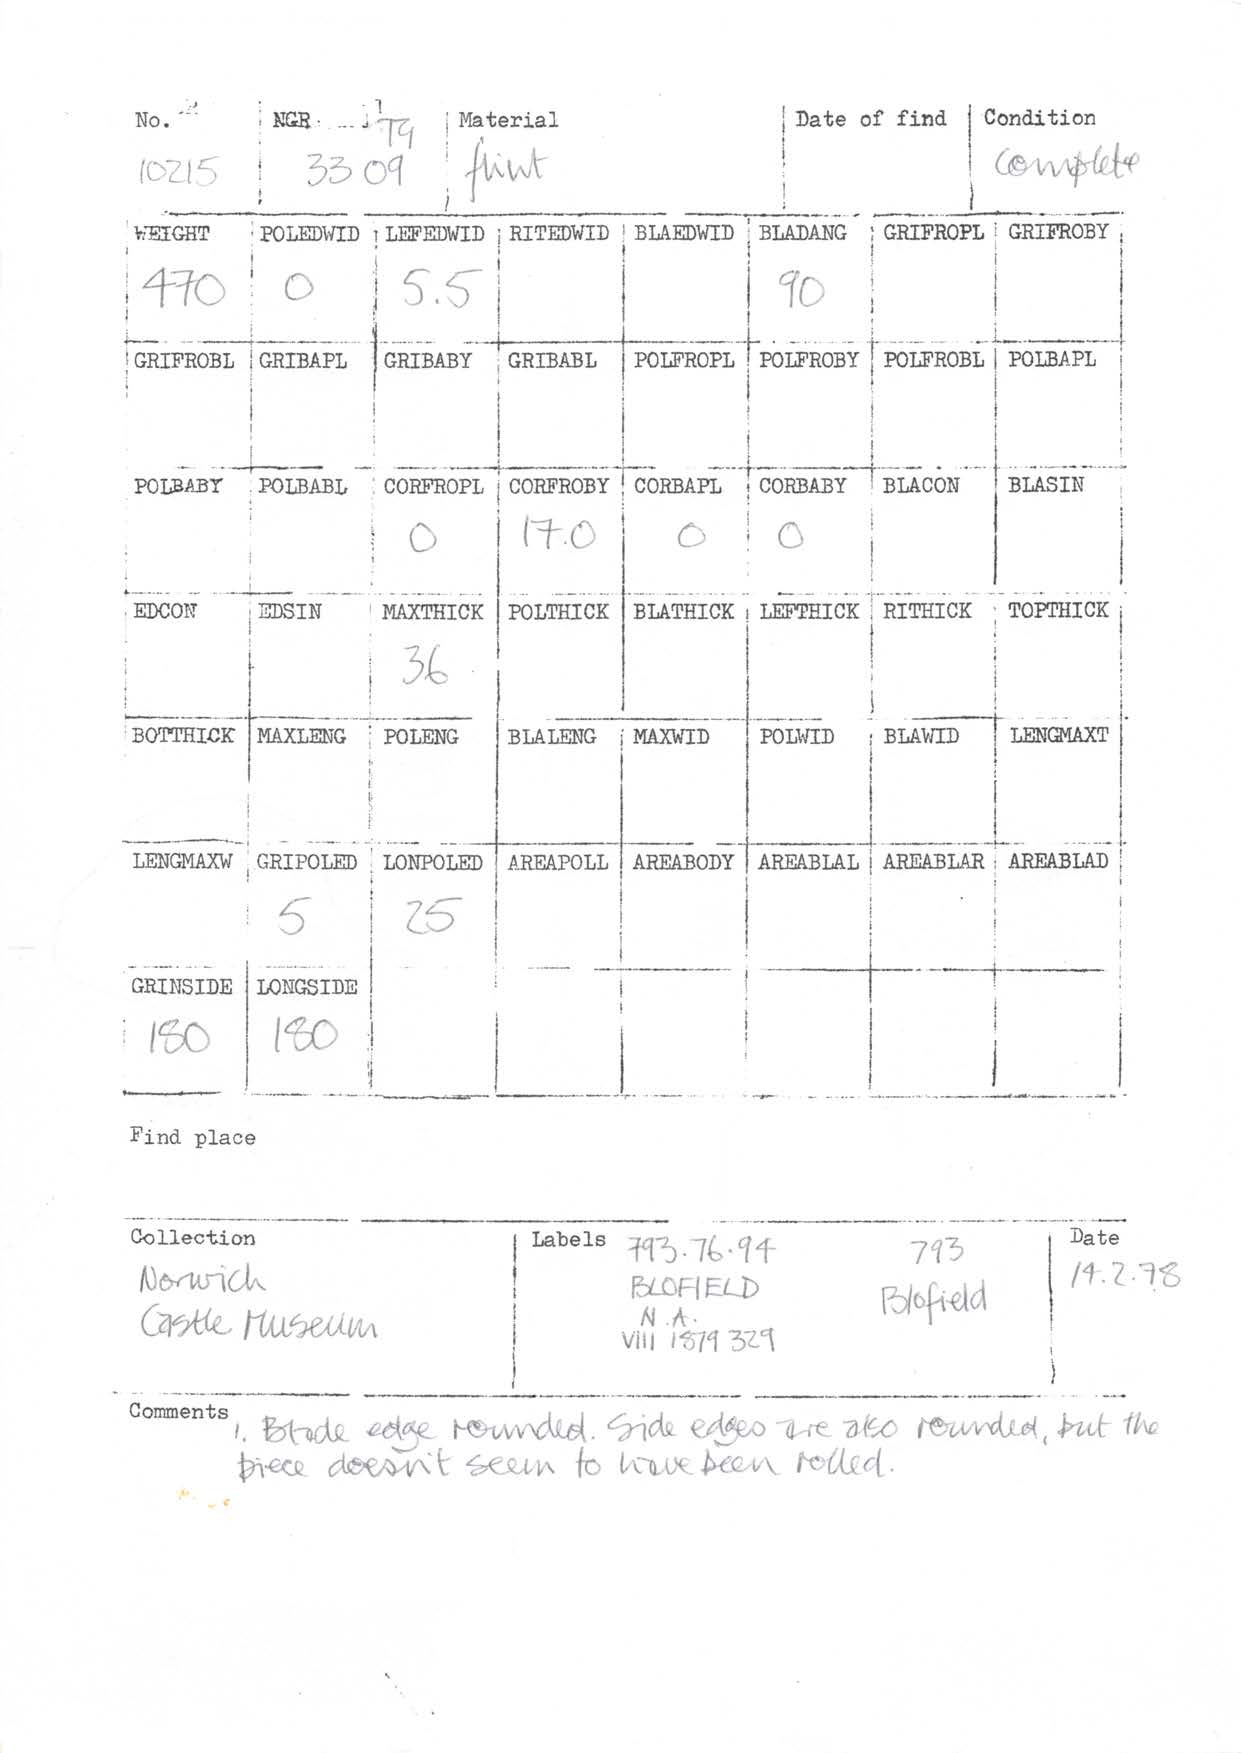 No. NGR TG Material Date of find Condition
10215 33 09 flint complete
WEIGHT POLEDWID LEFEDWID RITEDWID BLAEDWID BLADANG GRIFROPL GRIFROBY
470 0 5.5 90
GRIFROBL GRIBAPL GRIBABY GRIBABL POLFROPL POLFROBY POLFROBL POLBAPL
POLBABY POLBABL CORFROPL CORFROBY CORBAPL CORBABY BLACON BLASIN
0 17.0 0 0
EDCON EDSIN MAXTHICK POLTHICK BLATHICK LEFTHICK RITHICK TOPTHICK
36
BOTTHICK MAXLENG POLENG BLALENG MAXWID POLWID BLAWID LENGMAXT
LENGMAXW GRIPOLED LONPOLED AREAPOLL AREABODY AREABLAL AREABLAR AREABLAD
5 25
GRINSIDE LONGSIDE
180 180
Find place
Collection Labels 793.76.94 793 Date
Norwich BLOFIELD Blofield 14.2.78
Castle Museum N.A.
VIII 1879 329
Comments 1. Blade edge rounded. Side edges are also rounded, but the
piece doesn't seem to have been rolled.